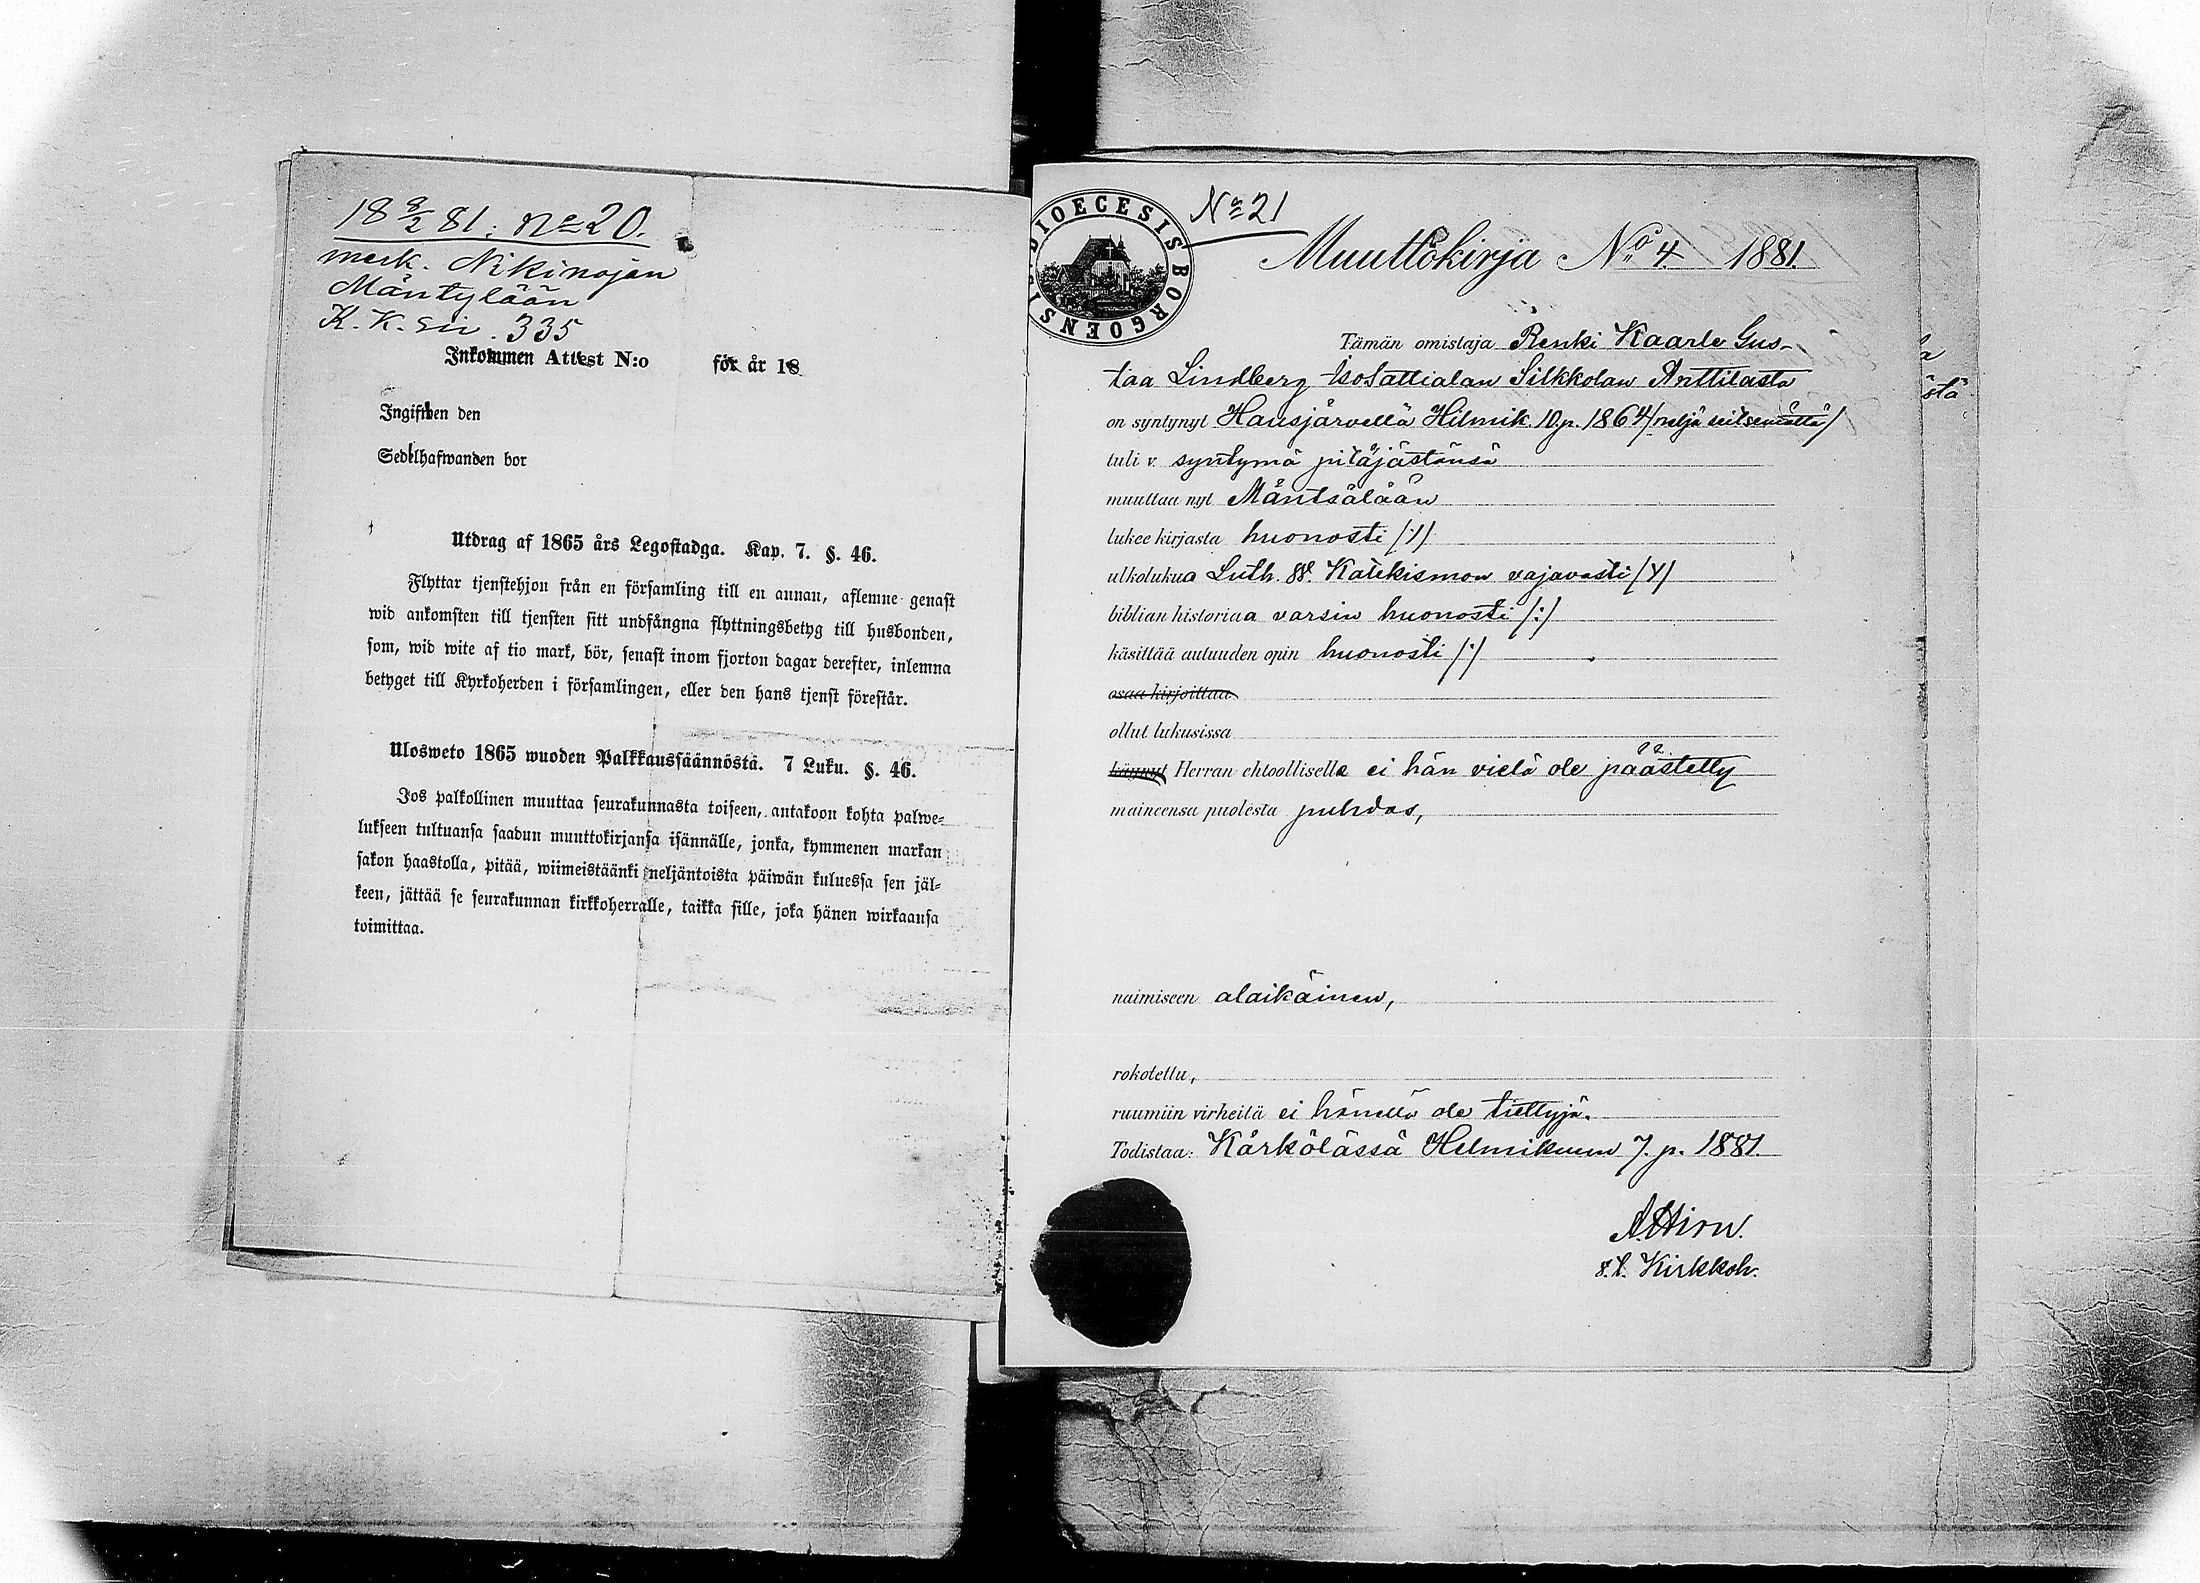 18 8/2 81. No 20.
merk. Nikinojan
Mäntylään
K. K. siv. 335
Inkommen Attest N:o för år 18
Ingifwen den
Sedelhafwanden bor
Utdrag af 1865 års Legostadga. Kap. 7. §. 46.
Flyttar tjenstehjon från en församling till en annan, aflemne genast
wid ankomsten till tjensten sitt undfångna flyttningsbetyg till husbonden,
som, wid wite af tio mark, bör, senast inom fjorton dagar derefter, inlemna
betyget till Kyrkoherden i församlingen, eller den hans tjenst förestår.
Ulosweto 1865 wuoden Palkkaussäännöstä. 7 Luku. §. 46.
Jos palkollinen muuttaa seurakunnasta toiseen, antakoon kohta palwe-
lukseen tultuansa saadun muuttokirjansa isännälle, jonka, kymmenen markan
sakon haastolla, pitää, wiimeistäänki neljäntoista päiwän kuluessa sen jäl-
keen, jättää se seurakunnan kirkkoherralle, taikka sille, joka hänen wirkaansa
toimittaa.
DIOECESIS BORGOENSIS
No 21
Muuttokirja No 4. 1881.
Tämän omistaja Renki Kaarle Gus-
taa Lindberg Isosattialan Silkkolan Anttilasta
on syntynyt Hausjärvellä Hilmik. 10 p. 1864 /neljä seitsemättä/
tuli v. syntymä pitäjästänsä
muuttaa nyt Mäntsälään
lukee kirjasta huonosti
ulkolukua Luth. Katekismon vajavasti
biblian historiaa varsin huonosti /:/
käsittää autuuden opin huonosti
osaa kirjoittaa
ollut lukusissa
käynyt Herran ehtoollisella ei hän vielä ole päästetty
maineensa puolesta puhdas,
naimiseen alaikäinen,
rokotettu,
ruumiin virheitä ei hänellä ole tiettyjä.
Todistaa: Kärkölässä Helmikuun 7. p. 1881.
A. Hirn.
Kirkkoh.